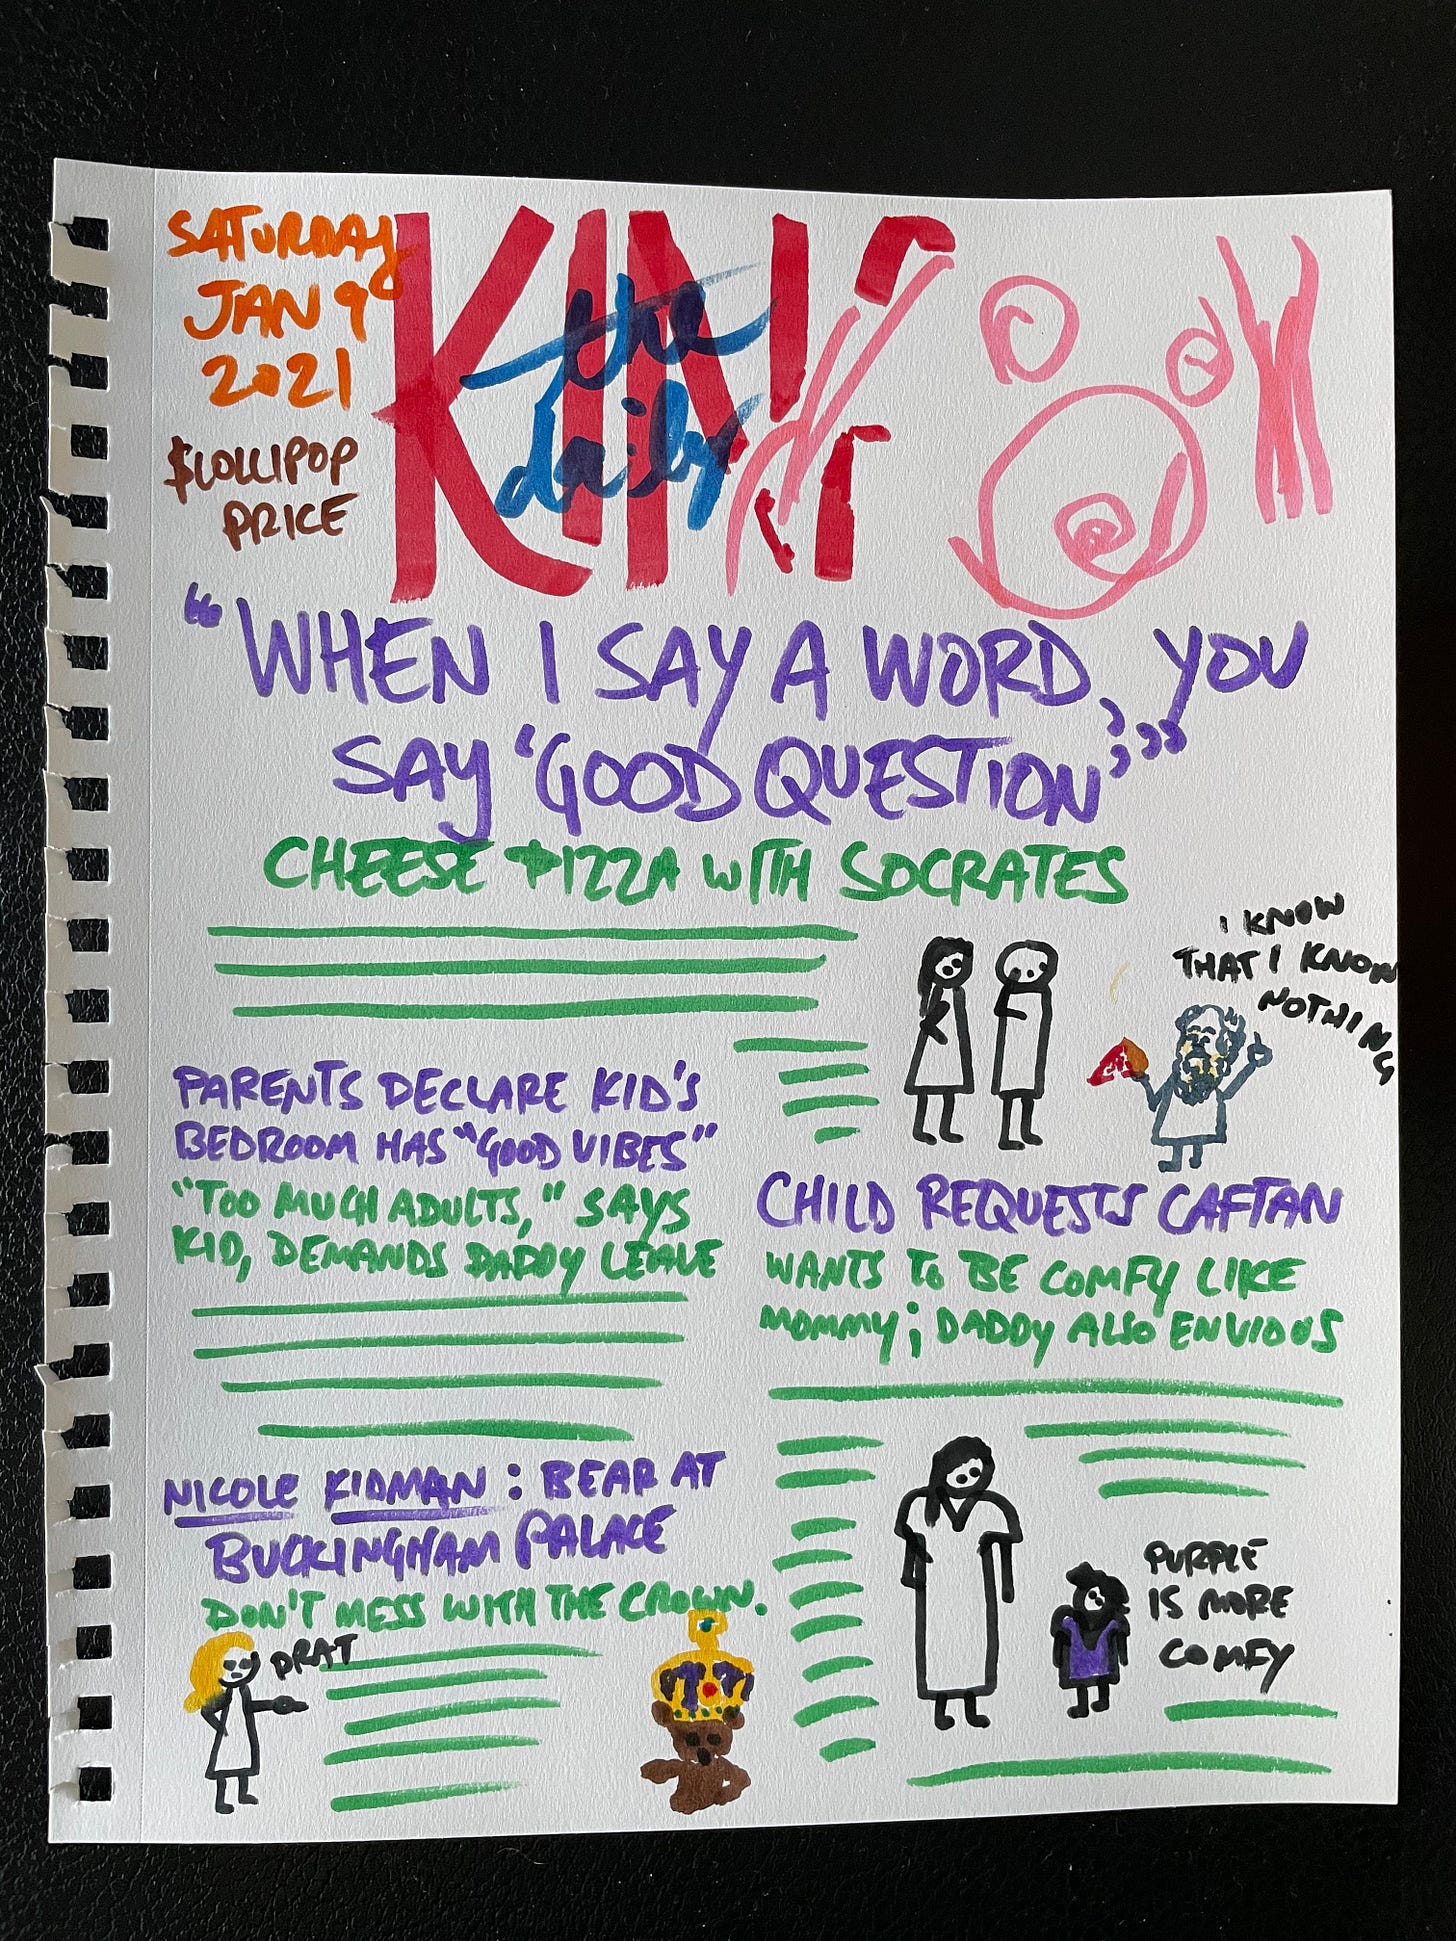 SATURDAY
JAN 9
2021
$LOLLIPOP
PRICE
the
daily
"WHEN I SAY A WORD, YOU
SAY 'GOOD QUESTION'"
CHEESE PIZZA WITH SOCRATES
I KNOW
THAT I KNOW
NOTHING
PARENTS DECLARE KID'S
BEDROOM HAS "GOOD VIBES"
"TOO MUCH ADULTS," SAYS
KID, DEMANDS DADDY LEAVE
CHILD REQUESTS CAFTAN
WANTS TO BE COMFY LIKE
MOMMY; DADDY ALSO ENVIOUS
PURPLE
IS MORE
COMFY
NICOLE KIDMAN: BEAR AT
BUCKINGHAM PALACE
DON'T MESS WITH THE CROWN.
DRAT